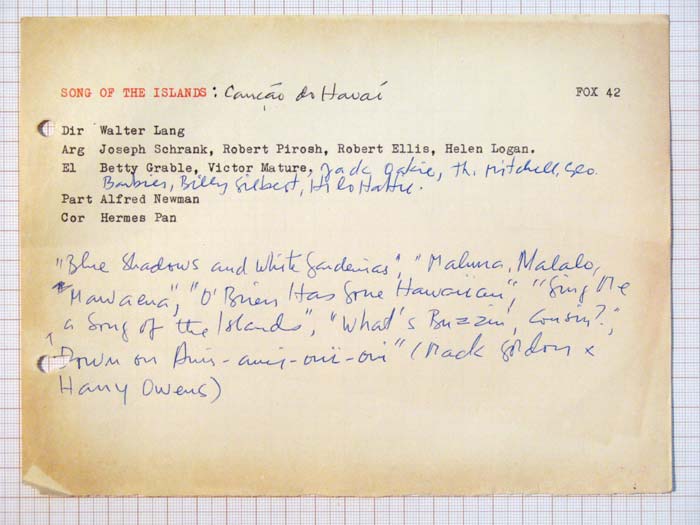 SONG OF THE ISLANDS: Canção do Havaí FOX 42
Dir Walter Lang
Arg Joseph Schrank, Robert Pirosh, Robert Ellis, Helen Logan.
El Betty Grable, Victor Mature, Jack Oakie, Th. Mitchell, Geo.
Barbier, Billy Gilbert, Hilo Hattie.
Part Alfred Newman
Cor Hermes Pan
"Blue Shadows and White Gardenias", "Maluna, Malalo,
Mawaena", "O'Brien Has Gone Hawaiian", "Sing Me
a Song of the Islands", "What's Buzzin', Cousin?",
Down on Ami-ami-oni-oni" (Mack Gordon x
Harry Owens)